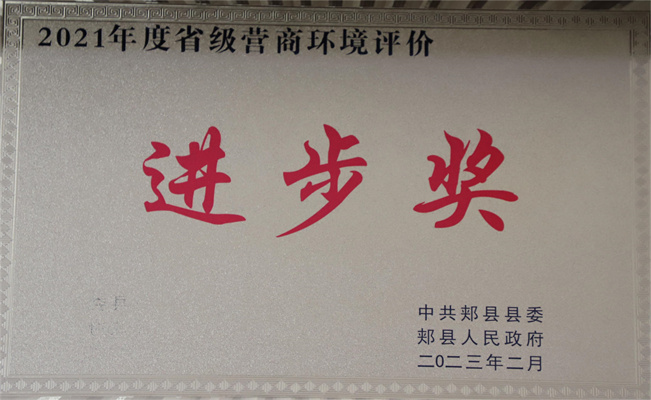 2021年度省级营商环境评价
进步奖
中共郏县县委
郏县人民政府
二0二三年二月